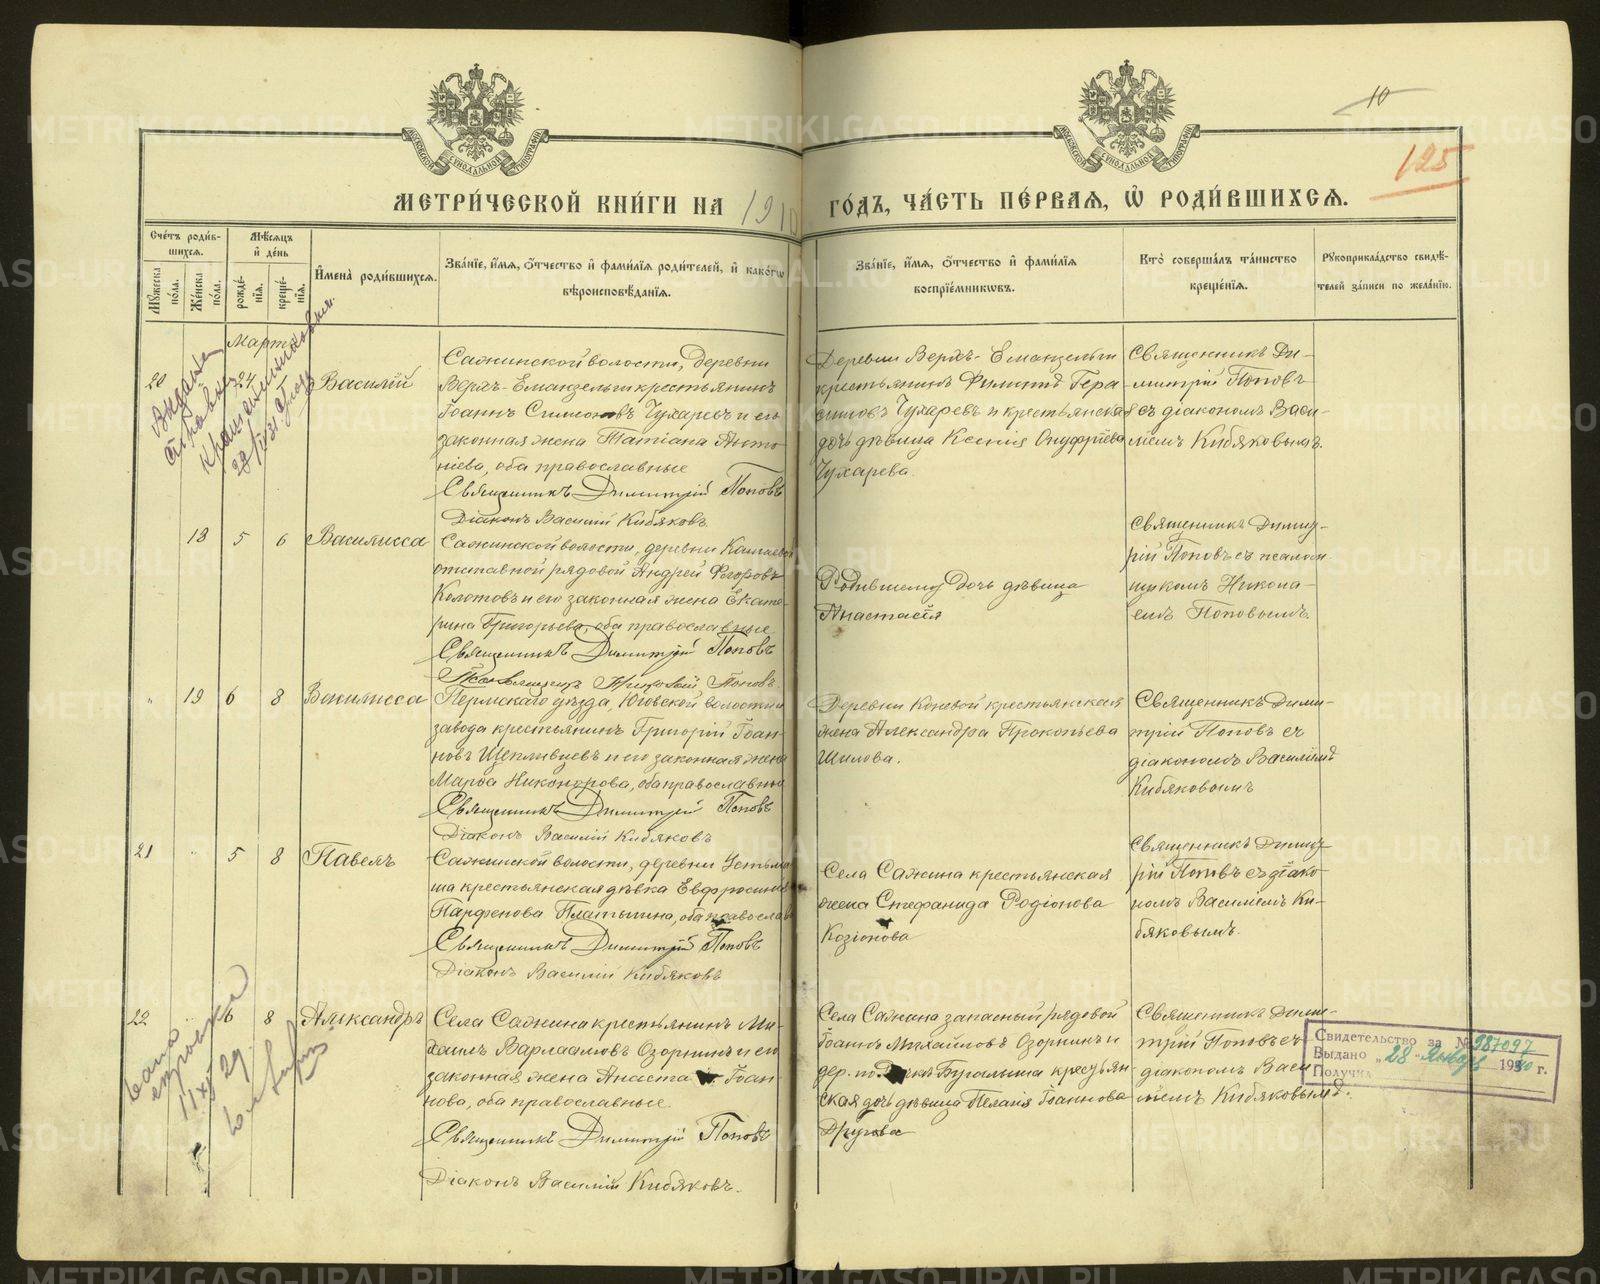 10
125
МЕТРИ́ЧЕСКОЙ КНИ́ГИ НА 1910 ГО́ДЪ, ЧА́СТЬ ПЕ́РВАѦ, Ѡ҆ РОДИ́ВШИХСѦ.
Сче́тъ роди́в-
шихсѧ.
Мꙋ́жеска
по́ла.
Же́нска
по́ла.
Мѣ́сѧцъ
и҆ де́нь
рожде́-
нїѧ.
креще́-
нїѧ.
И҆мена̀ роди́вшихсѧ.
Зва́нїе, и҆́мѧ, ѻ҆́тчество и҆ фами́лїѧ роди́телей, и҆ како́гѡ
вѣроисповѣ́данїѧ.
Зва́нїе, и҆́мѧ, ѻ҆́тчество и҆ фами́лїѧ
воспрїе́мникѡвъ.
Кто̀ соверша́лъ та́инство
креще́нїѧ.
Рꙋкоприкла́дство свидѣ́-
телей за́писи по жела́нїю.
Мартъ
20
Василій
Сажинской волости, деревни
Верхъ-Емангельги крестьянинъ
Іоаннъ Симеоновъ Чухаревъ и его
законная жена Татіана Анто-
ніева, оба православные
Священникъ Димитрій Поповъ
Діаконъ Василій Кибяковъ
Деревни Верхъ-Емангельги
крестьянинъ Филиппъ Гера
симовъ Чухаревъ и крестьянская
дочь дѣвица Ксенія Онуфріева
Чухарева.
Священникъ Ди-
митрій Поповъ
съ діакономъ Васи-
ліемъ Кибяковымъ.
18 5 6 Василисса
Сажинской волости, деревни
отставной рядовой Андрей Ѳеоровъ
Колотовъ и его законная жена Екате-
рина Григорьева, оба православные
Священникъ Димитрій Поповъ
Псаломщикъ Николай Поповъ.
Родившему дочь дѣвица
Анастасія
Священникъ Димит-
рій Поповъ съ псалом-
щикомъ Никола-
емъ Поповымъ.
" 19 6 8 Василисса
Пермскаго уѣзда, Юговской волости и
завода крестьянинъ Григорій Іоан-
новъ Щепливцевъ и его законная жена
Марѳа Никонорова, оба православные
Священникъ Димитрій Поповъ
Діаконъ Василій Кибяковъ
Деревни Коневой крестьянская
жена Александра Прокопьева
Шилова.
Священникъ Дими-
трій Поповъ съ
діакономъ Василіемъ
Кибяковымъ
21 " 5 8 Павелъ
Сажинской волости, деревни Усть-ма
ша крестьянская дѣвка Евфросинія
Парфенова Платыгина, оба православ
Священникъ Димитрій Поповъ
Діаконъ Василій Кибяковъ
Села Сажина крестьянская
жена Стефанида Родіонова
Козіонова
Священникъ Димит-
рій Поповъ съ діако-
номъ Василіемъ Ки-
бяковымъ.
22 6 8 Александръ
Села Сажина крестьянинъ Ми-
хаилъ Варлаамовъ Озорнинъ и его
законная жена Анаста Іоан-
нова, оба православные.
Священникъ Димитрій Поповъ
Діаконъ Василій Кибяковъ.
Села Сажина запасный рядовой
Іоаннъ Михайловъ Озорнинъ и
дер. Бугалыша крестьян
ская дочь дѣвица Пелагія Іоаннова
Другова
Священникъ Дими-
трій Поповъ съ
діакономъ Васи-
ліемъ Кибяковымъ.
Свидетельство за № 987097
Выдано „28" Январь 1930 г.
Получил
METRIKI.GASO-URAL.RU